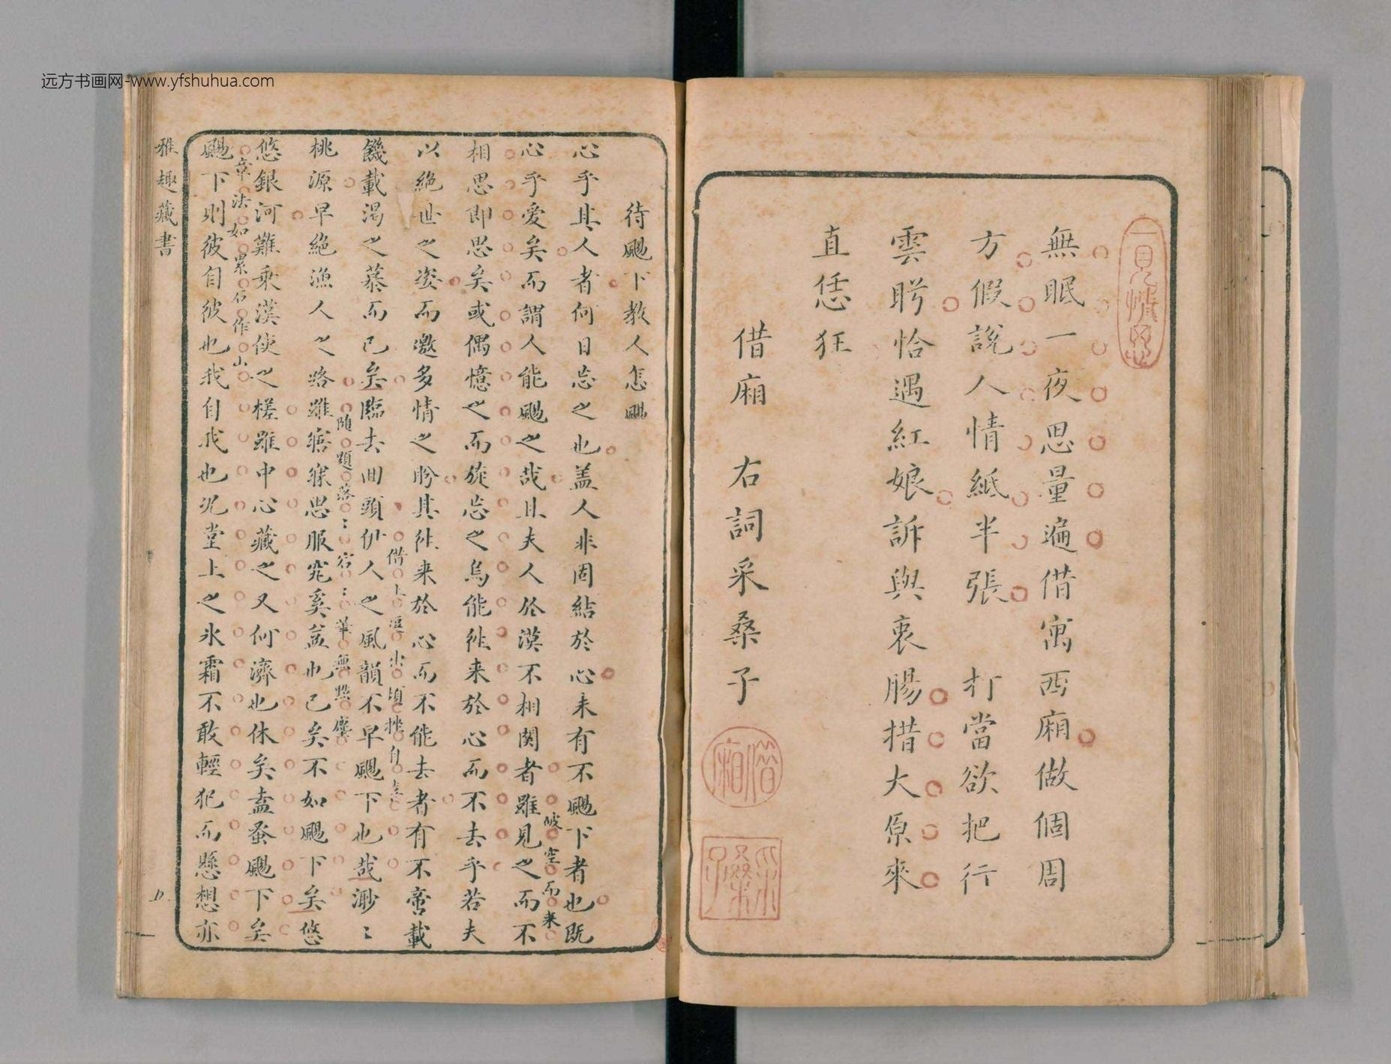 远方书画网-www.yfshuhua.com
無眠一夜思量遍借寓西廂做個周
方假說人情紙半張 打當欲把行
雲盻恰遇紅娘訴與衷腸措大原來
直恁狂
借廂 右詞采桑子
借廂
采桑子
待颺下教人怎颺
心乎其人者何日忘之也盖人非固結於心未有不颺下者也既
心乎愛矣而謂人能颺之哉且夫人於漠不相関者雖見之而不
破空而来
相思即思矣或偶憶之而旋忘之烏能徃来於心而不去乎若夫
以絕世之姿而邀多情之盼其徃来於心而不能去者有不啻載
饑載渴之慕而已矣臨去回頭伊人之風韻不早颺下也哉渺〻
桃源早絕漁人之路雖寤寐思服究奚益也已矣不如颺下矣悠
隨題落〻宕〻筆無點塵
悠銀河難乘漢使之槎雖中心藏之又何濟也休矣盍蚤颺下矣
章法如累石作山
颺下則彼自彼也我自我也况堂上之氷霜不敢輕犯而懸想亦
雅趣藏書